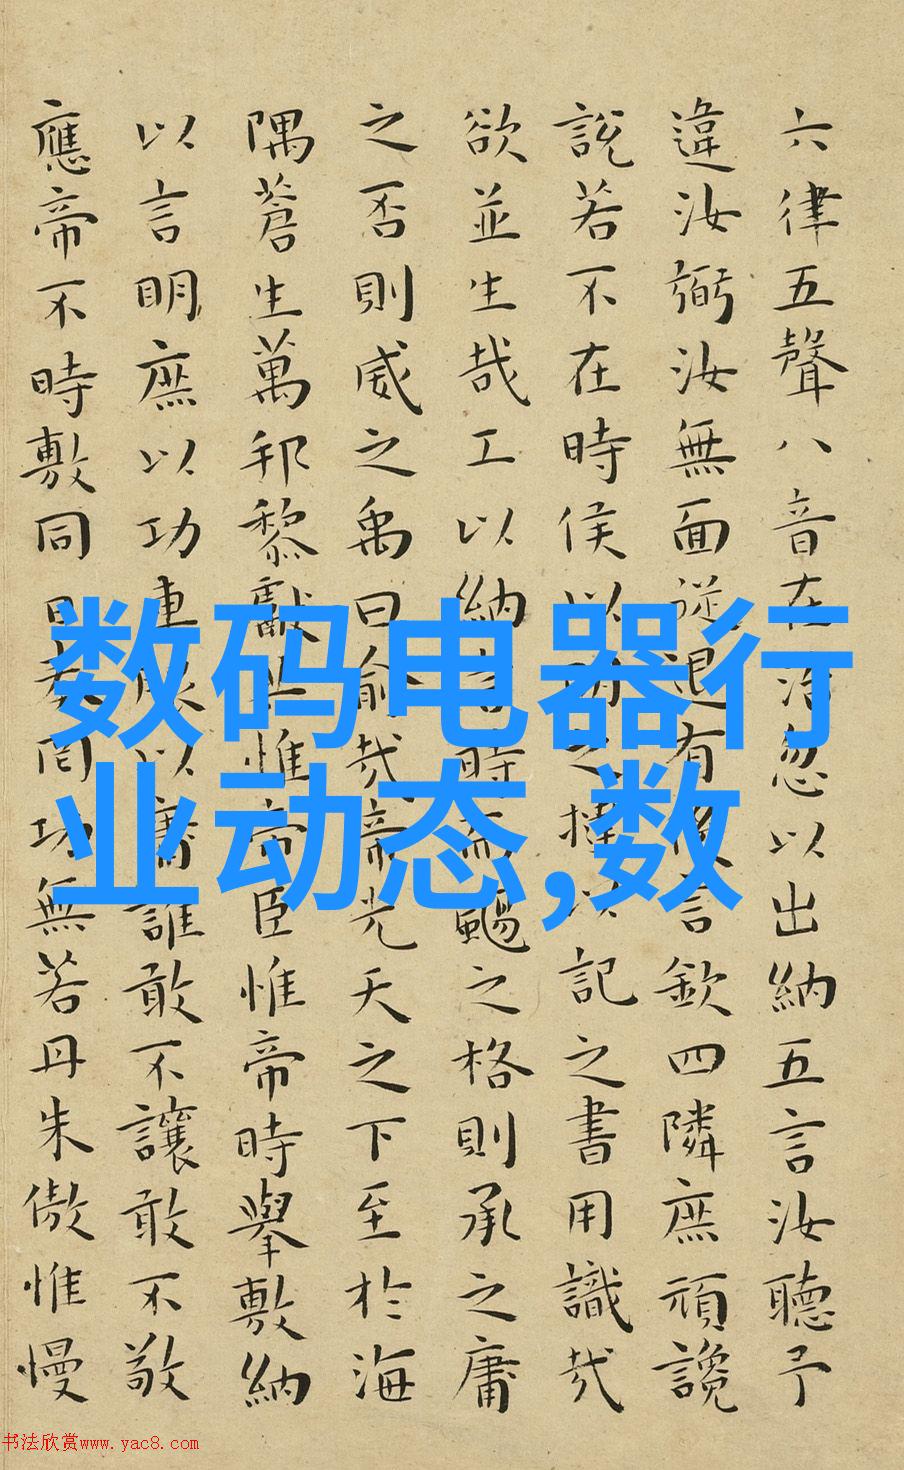 六律五聲八音在治忽以出納五言汝聽予
違汝弼汝無面從退有後言欽四隣庶頑讒
說若不在時侯以明之撻以記之書用識哉
欲並生哉工以納言時而颺之格則承之庸
之否則威之禹曰俞哉帝光天之下至於海
隅蒼生萬邦黎獻共惟帝臣惟帝時舉敷納
以言明庶以功車服以庸誰敢不讓敢不敬
應帝不時敷同日奏罔功無若丹朱傲惟慢
数码电器行
业动态,数
书法欣赏www.yac8.com